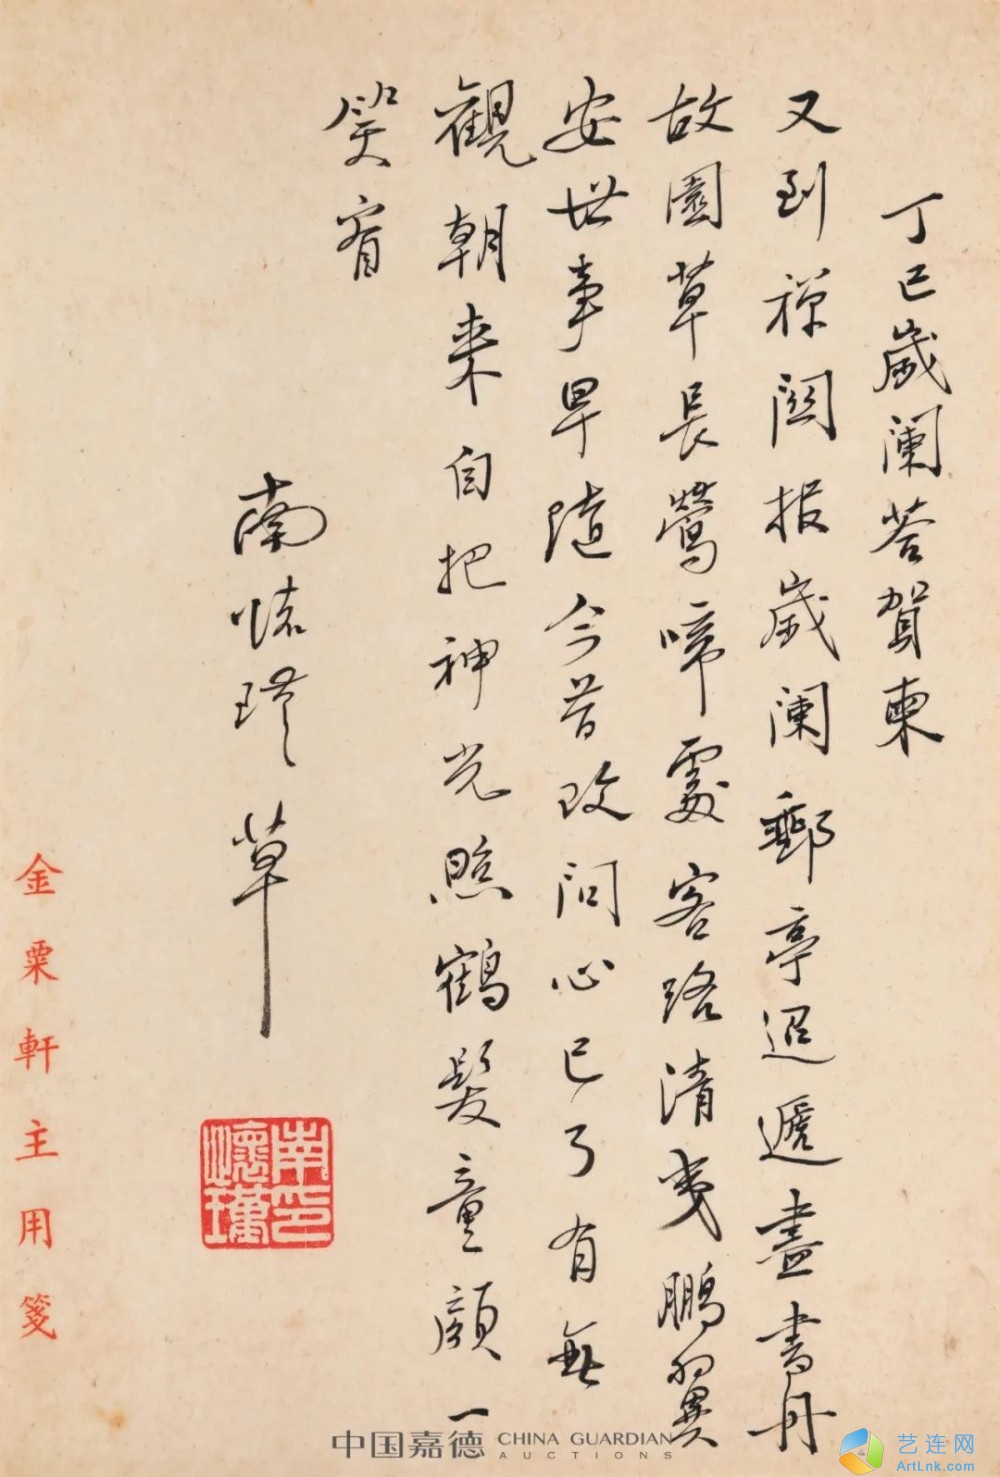 丁巳歲闌荅賀柬
又到禪關報歲闌郵亭迢遞盡書丹
故園草長鶯啼處客路清夷鵬翼
安世事早隨今昔改問心已了有無
觀朝来自把神光照鶴髮童顏一
笑看
南懷瑾草
南印
懷瑾
金粟軒主用箋
中国嘉德 CHINA GUARDIAN
AUCTIONS
艺连网
ArtLnk.com